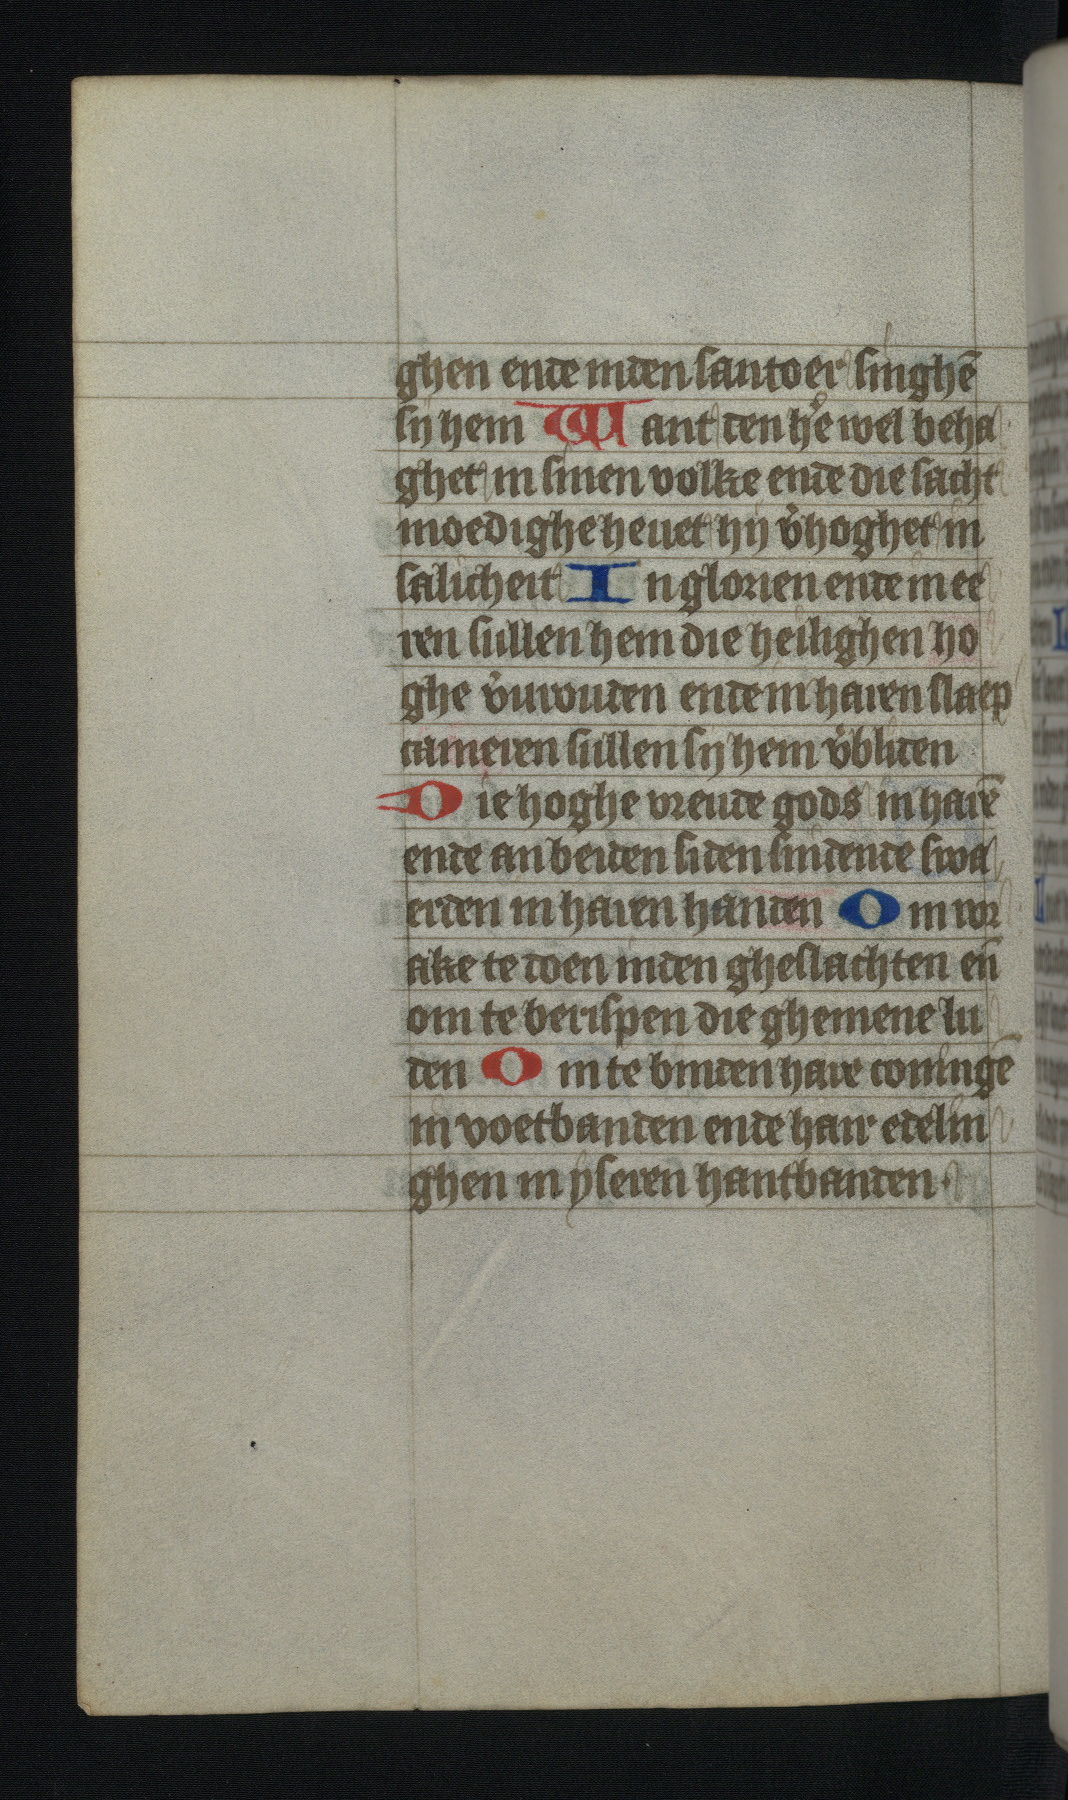 ghen ende inden santoer singhē
sy hem Want den hē wel beha
ghet in sinen volke ende die sacht
moedighe heuet hy v̄hoghet in
salicheit In glorien ende in ee
ren sullen hem die heilighen ho
ghe v̄urouden ende in haren slaep
cameren sullen sy hem v̄bliden
Die hoghe vreude gods in harē
ende an beiden siden snidende swa
erden in haren handen Om wr
ake te doen inden gheslachten eñ
om te berispen die ghemene lu
den Om te binden hare coningē
in voetbanden ende haer edelin
ghen in yseren hantbanden.